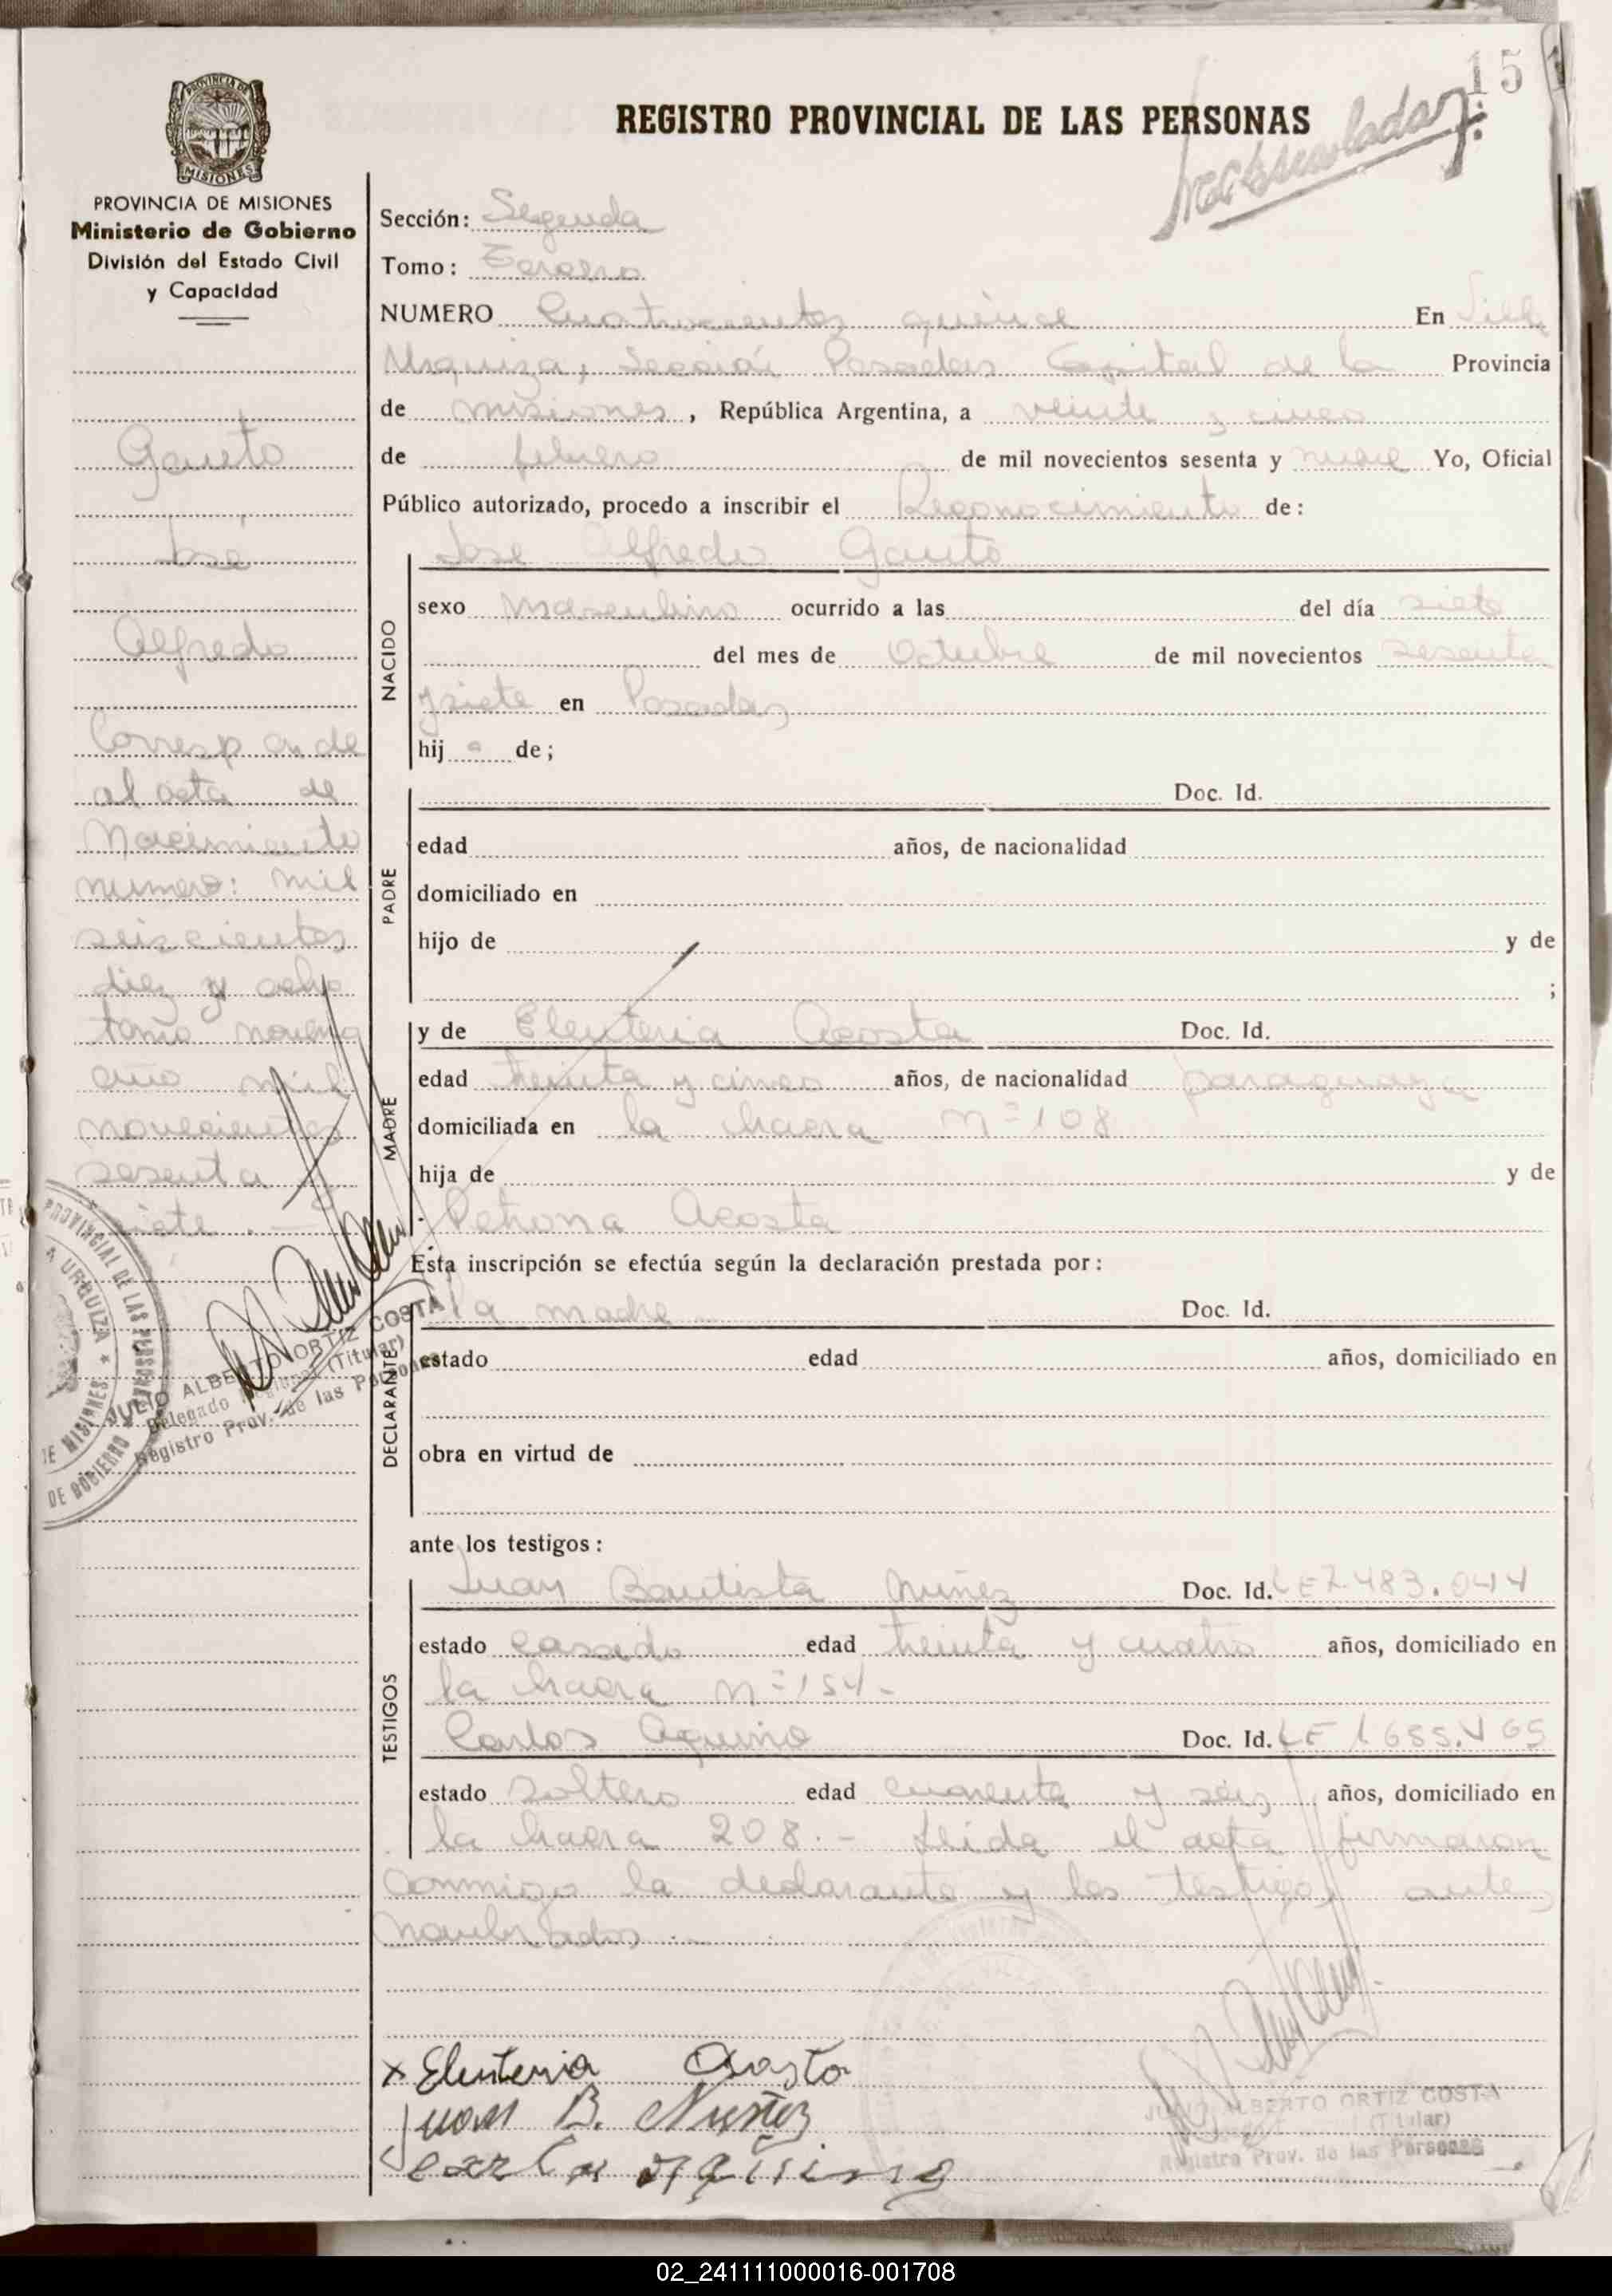 15
REGISTRO PROVINCIAL DE LAS PERSONAS
PROVINCIA DE MISIONES
MISIONES
PROVINCIA DE MISIONES
Ministerio de Gobierno
División del Estado Civil
y Capacidad
Gauto
José
Alfredo
Corresponde
al acta de
Nacimiento
numero: mil
seiscientos
diez y ocho
tomo noveno
año mil
novecientos
sesenta y
siete.-
JULIO ALBERTO ORTIZ COSTA
Delegado (Titular)
Registro Prov. de las Personas
Sección: Segunda
Tomo: Tercero
NUMERO Cuatrocientos quince En Villa
Urquiza, Sección Posadas Capital de la Provincia
de misiones, República Argentina, a veinte y cinco
de febrero de mil novecientos sesenta y nueve Yo, Oficial
Público autorizado, procedo a inscribir el Reconocimiento de:
NACIDO
Jose Alfredo Gauto
sexo Masculino ocurrido a las del día siete
del mes de Octubre de mil novecientos sesenta
y siete en Posadas
hij o de;
PADRE
Doc. Id.
edad años, de nacionalidad
domiciliado en
hijo de y de
;
MADRE
y de Eleuteria Acosta Doc. Id.
edad treinta y cinco años, de nacionalidad paraguaya
domiciliada en la chacra nº 108
hija de y de
Petrona Acosta
Esta inscripción se efectúa según la declaración prestada por:
DECLARANTE
la madre Doc. Id.
estado edad años, domiciliado en
obra en virtud de
ante los testigos:
TESTIGOS
Juan Bautista Nuñez Doc. Id. LE 7.483.044
estado casado edad treinta y cuatro años, domiciliado en
la chacra nº 154-
Carlos Aquino Doc. Id. LE
estado soltero edad cuarenta y seis años, domiciliado en
la chacra 208.- Leida el acta firmaron
conmigo la declarante y los testigos antes
nombrados.-
x Eleuteria Acosta
Juan B. Nuñez
Carlos Aquino
JULIO ALBERTO ORTIZ COSTA
(Titular)
Registro Prov. de las Personas
02_241111000016-001708